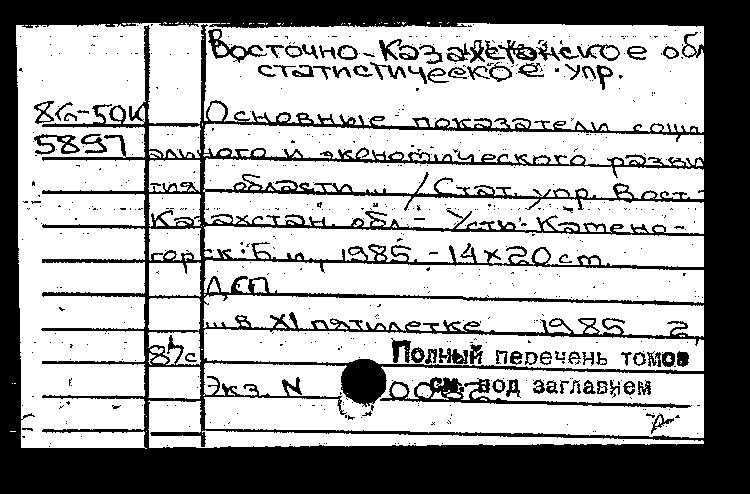 Восточно-Казахстанское обл
статистическое упр.
86-50К Основные показатели соци
5897 ального и экономического разви
тия области... / Стат. упр. Вост.-
Казахстан. обл.- Усть-Камено-
горск: Б. и., 1985. - 14х20 cm.
ДСП.
...в XI пятилетке. 1985. 2,
87с. Полный перечень томов
Экз. N 0082 см. под заглавием